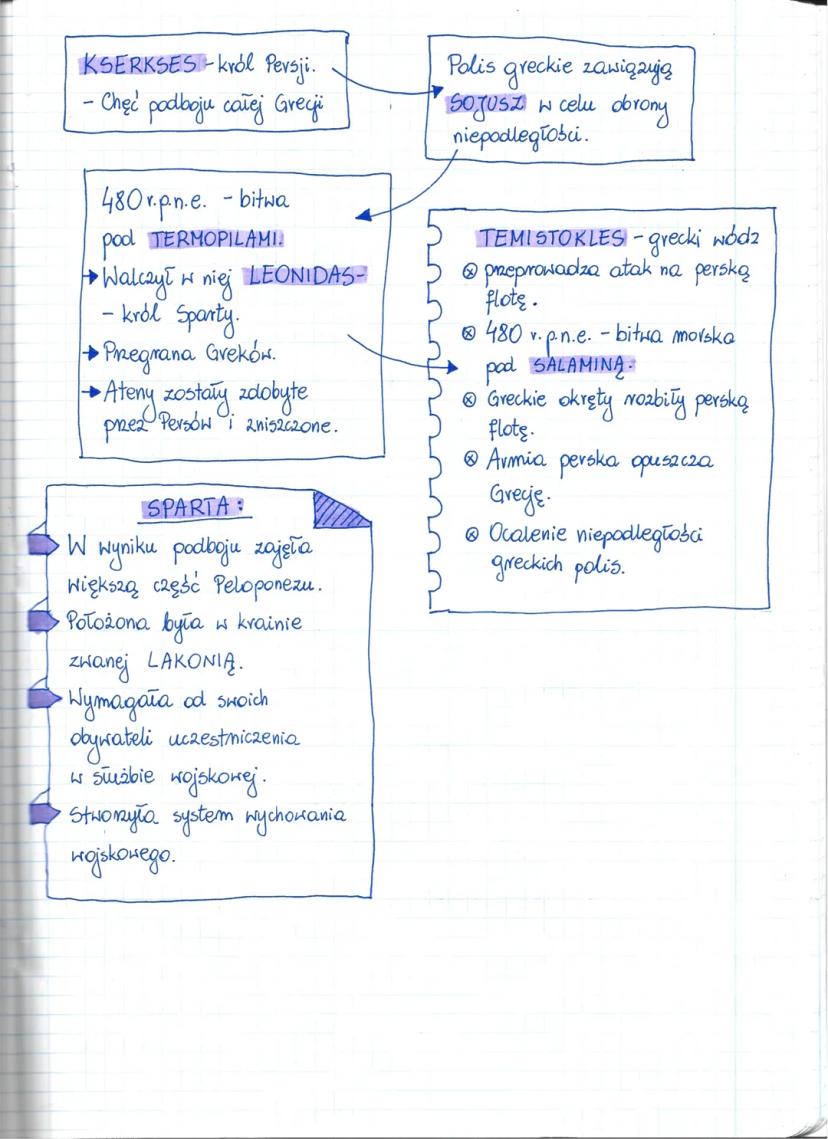 KSERKSES - król Persji.
- Chęć podboju całej Grecji
Polis greckie zawiązują
SOJUSZ w celu obrony
niepodległości.
480 r.p.n.e. - bitwa
pod TERMOPILAMI.
Walczył w niej LEONIDAS-
- król Sparty.
Przegrana Greków.
Ateny zostały zdobyte
przez Persów i zniszczone.
TEMISTOKLES - grecki wódz
przeprowadza atak na perską
flotę.
480 r.p.n.e. - bitwa morska
pod SALAMINĄ.
Greckie okręty rozbiły perską
flotę.
Armia perska opuszcza
Grecję.
Ocalenie niepodległości
greckich polis.
SPARTA:
W wyniku podboju zajęła
większą część Peloponezu.
Położona była w krainie
zwanej LAKONIĄ.
Wymagała od swoich
obywateli uczestniczenia
w służbie wojskowej.
Stworzyła system wychowania
wojskowego.